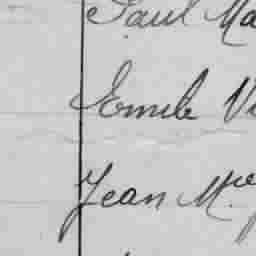 Paul Ma
Emile Vi
Jean M.